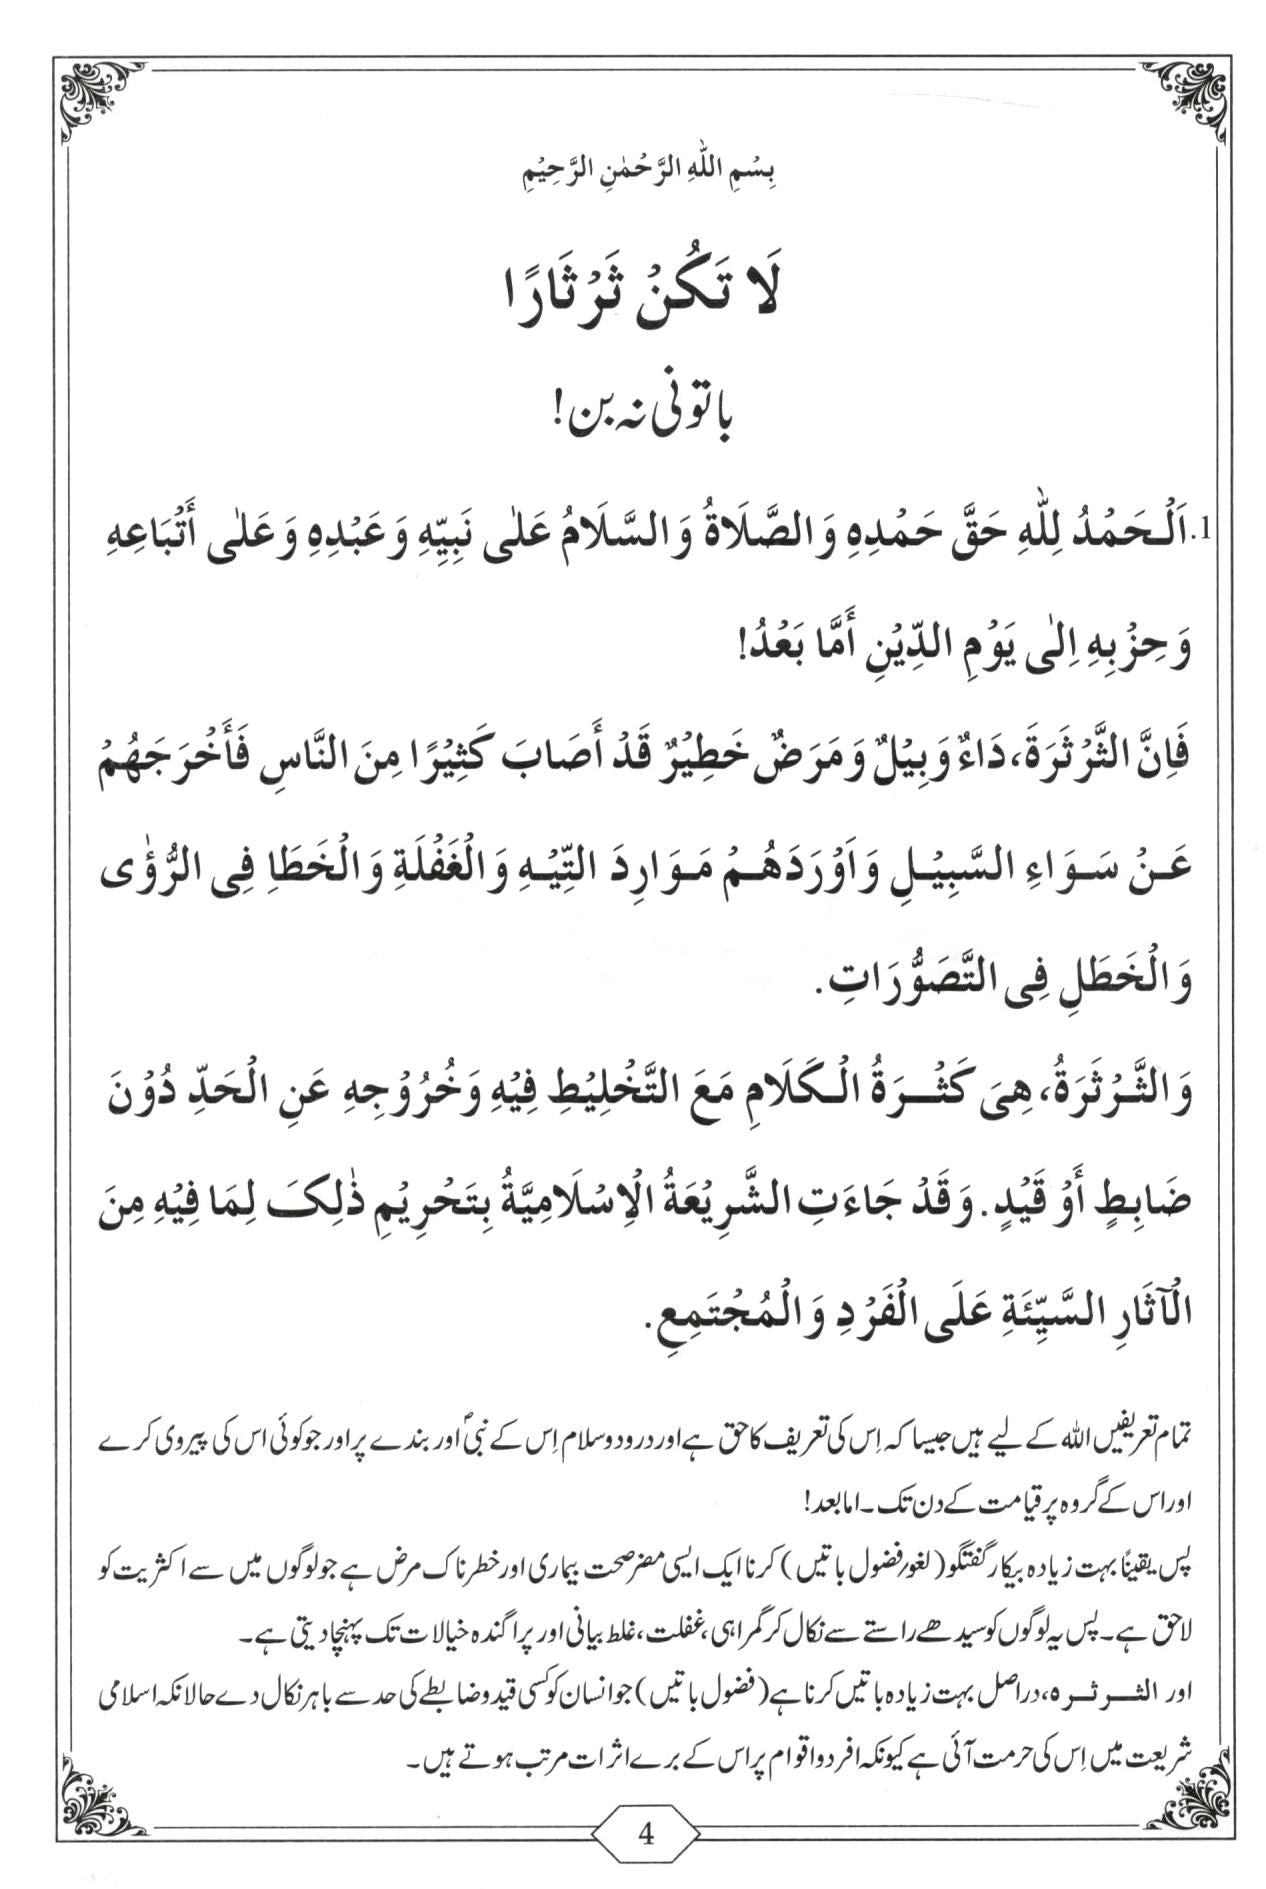 بِسْمِ اللهِ الرَّحْمٰنِ الرَّحِيْمِ
لَا تَكُنْ ثَرْثَارًا
باتونی نہ بن!
1. اَلْحَمْدُ لِلّٰهِ حَقَّ حَمْدِهِ وَالصَّلَاةُ وَالسَّلَامُ عَلٰی نَبِيِّهِ وَعَبْدِهِ وَعَلٰی أَتْبَاعِهِ
وَحِزْبِهِ اِلٰی يَوْمِ الدِّيْنِ أَمَّا بَعْدُ!
فَاِنَّ الثَّرْثَرَةَ، دَاءٌ وَبِيْلٌ وَمَرَضٌ خَطِيْرٌ قَدْ أَصَابَ كَثِيْرًا مِنَ النَّاسِ فَأَخْرَجَهُمْ
عَنْ سَوَاءِ السَّبِيْلِ وَاَوْرَدَهُمْ مَوَارِدَ التِّيْهِ وَالْغَفْلَةِ وَالْخَطَاِ فِی الرُّؤٰی
وَالْخَطَلِ فِی التَّصَوُّرَاتِ.
وَالثَّرْثَرَةُ، هِیَ كَثْرَةُ الْكَلَامِ مَعَ التَّخْلِيْطِ فِيْهِ وَخُرُوْجِهِ عَنِ الْحَدِّ دُوْنَ
ضَابِطٍ أَوْ قَيْدٍ. وَقَدْ جَاءَتِ الشَّرِيْعَةُ الْاِسْلَامِيَّةُ بِتَحْرِيْمِ ذٰلِکَ لِمَا فِيْهِ مِنَ
الْآثَارِ السَّيِّئَةِ عَلَی الْفَرْدِ وَالْمُجْتَمِعِ.
تمام تعریفیں اللہ کے لیے ہیں جیسا کہ اِس کی تعریف کا حق ہے اور درود و سلام اِس کے نبیؐ اور بندے پر اور جو کوئی اس کی پیروی کرے
اور اس کے گروہ پر قیامت کے دن تک۔ اما بعد!
پس یقینًا بہت زیادہ بیکار گفتگو (لغو، فضول باتیں) کرنا ایک ایسی مضر صحت بیماری اور خطرناک مرض ہے جو لوگوں میں سے اکثریت کو
لاحق ہے۔ پس یہ لوگوں کو سیدھے راستے سے نکال کر گمراہی، غفلت، غلط بیانی اور پراگندہ خیالات تک پہنچا دیتی ہے۔
اور الثرثرہ، دراصل بہت زیادہ باتیں کرنا ہے (فضول باتیں) جو انسان کو کسی قید و ضابطے کی حد سے باہر نکال دے حالانکہ اسلامی
شریعت میں اِس کی حرمت آئی ہے کیونکہ افرد و اقوام پر اس کے برے اثرات مرتب ہوتے ہیں۔
4